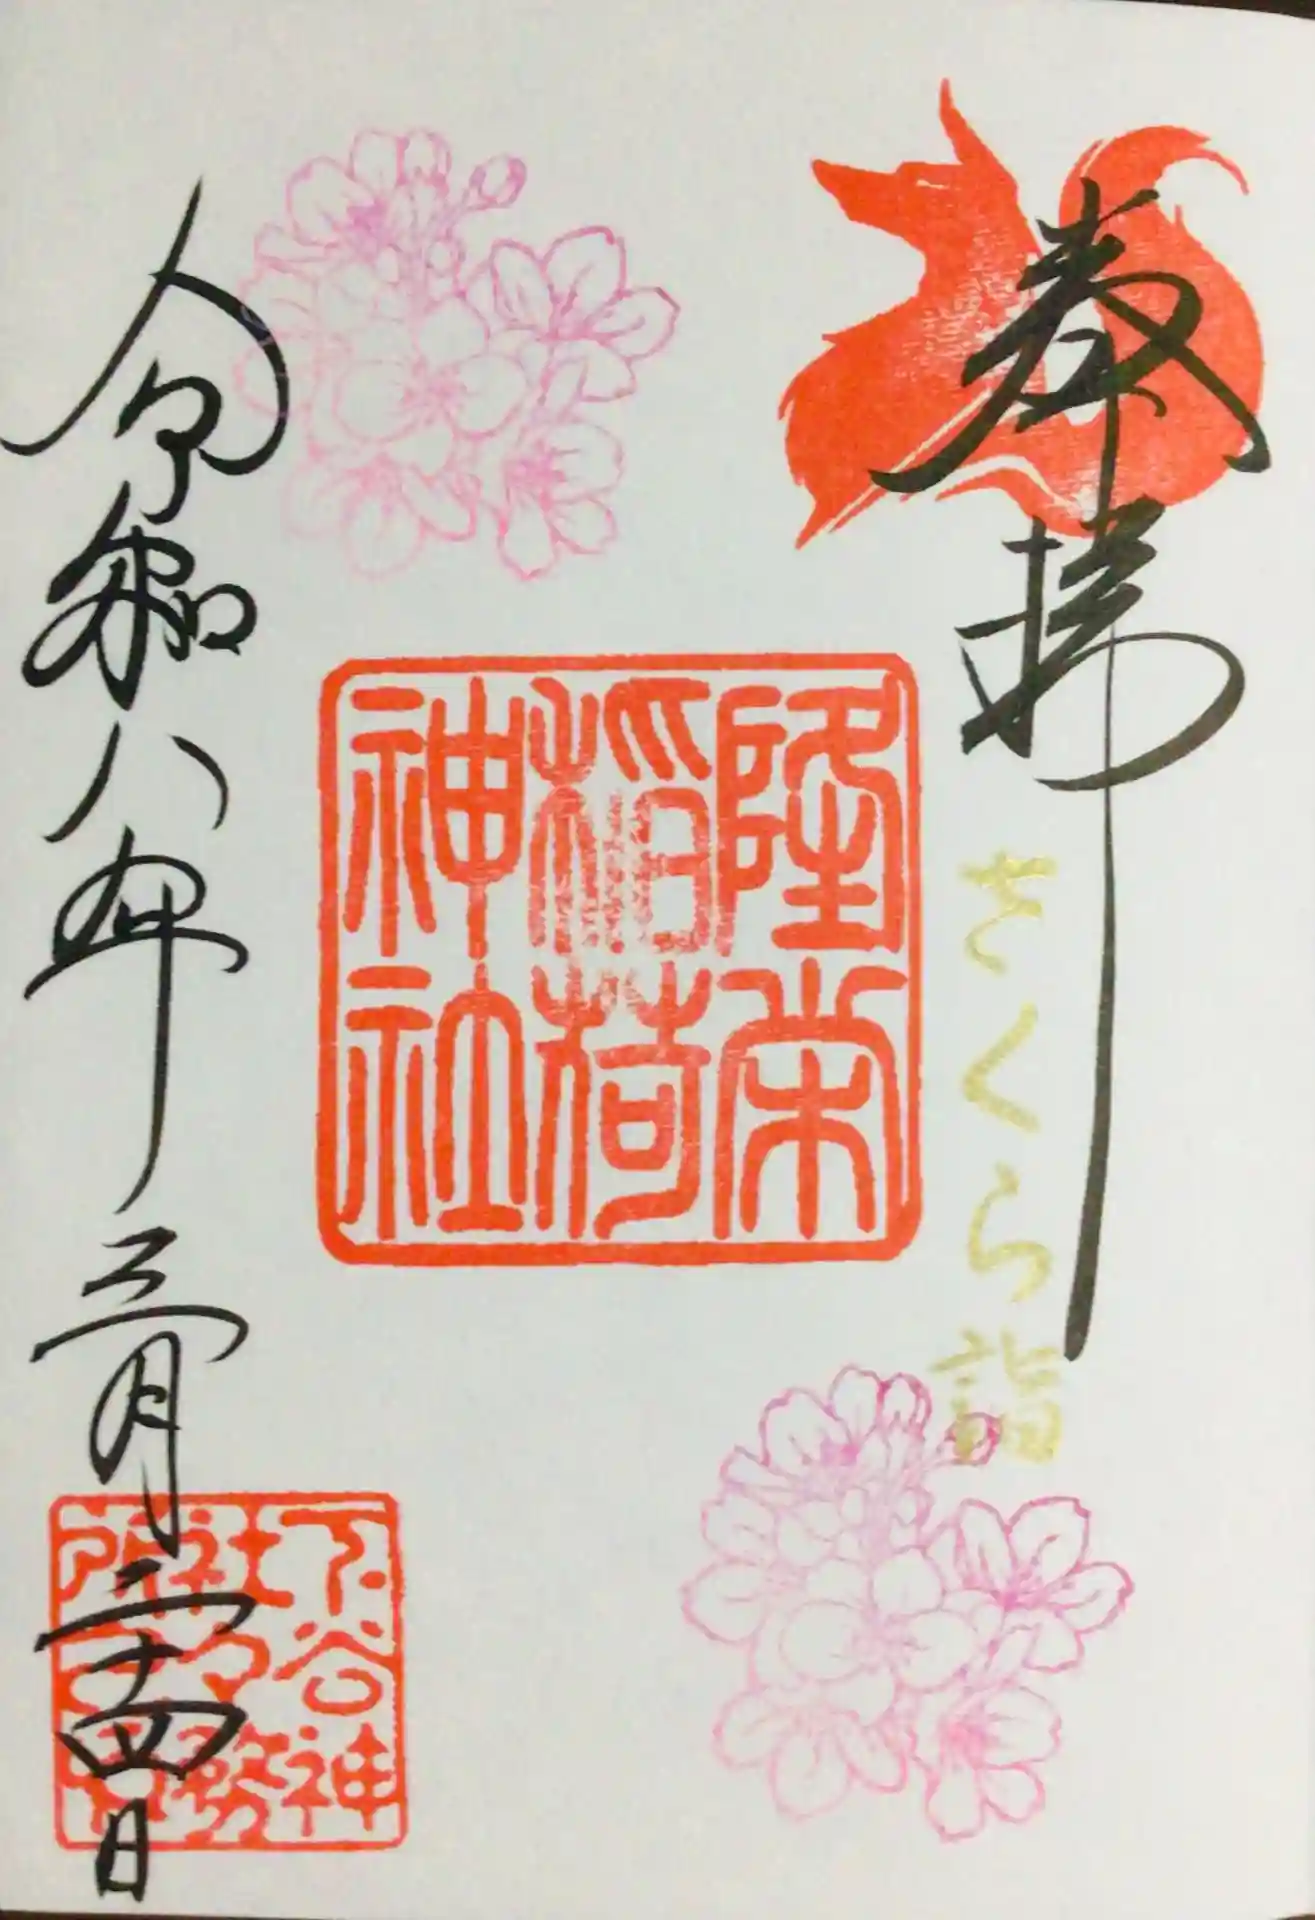 奉拝
さくら詣
隆栄
稲荷
神社
令和八年三月二十四日
下谷神
社々務
所之印